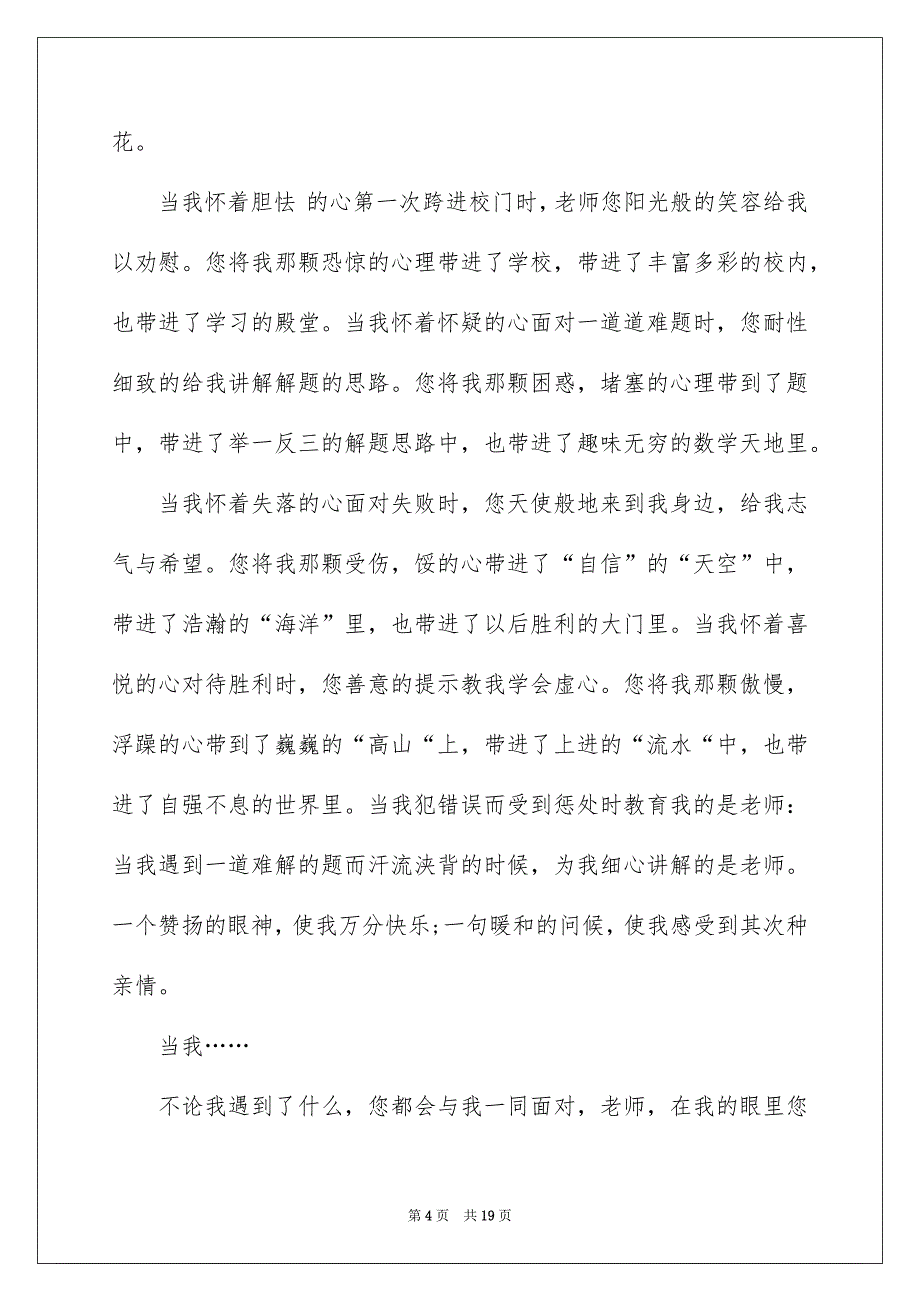 花。
当我怀着胆怯 的心第一次跨进校门时，老师您阳光般的笑容给我
以劝慰。您将我那颗恐惊的心理带进了学校，带进了丰富多彩的校内，
也带进了学习的殿堂。当我怀着怀疑的心面对一道道难题时，您耐性
细致的给我讲解解题的思路。您将我那颗困惑，堵塞的心理带到了题
中，带进了举一反三的解题思路中，也带进了趣味无穷的数学天地里。
当我怀着失落的心面对失败时，您天使般地来到我身边，给我志
气与希望。您将我那颗受伤，馁的心带进了“自信”的“天空”中，
带进了浩瀚的“海洋”里，也带进了以后胜利的大门里。当我怀着喜
悦的心对待胜利时，您善意的提示教我学会虚心。您将我那颗傲慢，
浮躁的心带到了巍巍的“高山“上，带进了上进的“流水“中，也带
进了自强不息的世界里。当我犯错误而受到惩处时教育我的是老师：
当我遇到一道难解的题而汗流浃背的时候，为我细心讲解的是老师。
一个赞扬的眼神，使我万分快乐;一句暖和的问候，使我感受到其次种
亲情。
当我……
不论我遇到了什么，您都会与我一同面对，老师，在我的眼里您
第 4 页 共 19 页